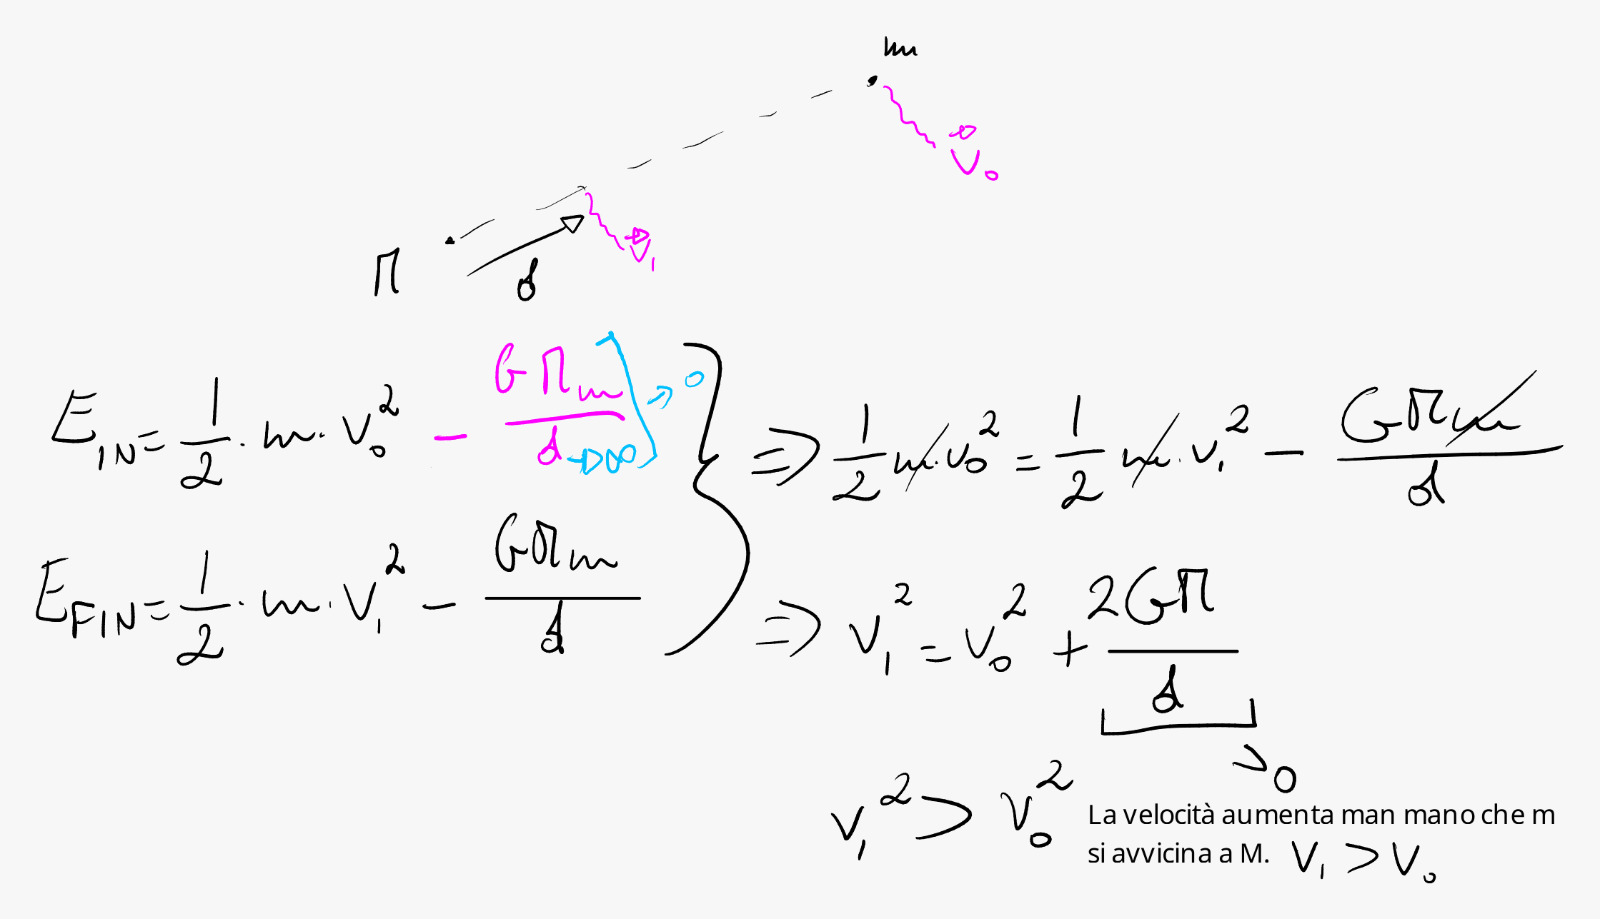 m
v⃗₀
v⃗₁
M
d
E_IN = 1/2 · m · v₀² − GMm/d → ∞ ] → 0
E_FIN = 1/2 · m · v₁² − GMm/d
⇒ 1/2 m · v₀² = 1/2 m · v₁² − GMm/d
⇒ v₁² = v₀² + 2GM/d
> 0
v₁² > v₀²
La velocità aumenta man mano che m
si avvicina a M. v₁ > v₀